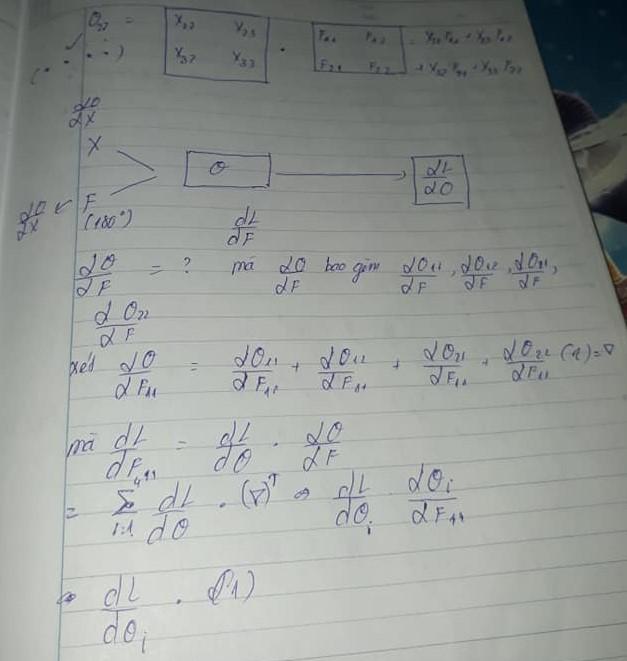 O₂₂ = [X₂₂ X₂₃ X₃₂ X₃₃] · [F₁₁ F₁₂ F₂₁ F₂₂] = X₂₂F₁₁ + X₂₃F₁₂
+ X₃₂F₂₁ + X₃₃F₂₂
∂O/∂X
X
O → ∂L/∂O
∂O/∂X ← F
(180°) ∂L/∂F
∂O/∂F = ? mà ∂O/∂F bao gồm ∂O₁₁/∂F, ∂O₁₂/∂F, ∂O₂₁/∂F,
∂O₂₂/∂F
xét ∂O/∂F₁₁ = ∂O₁₁/∂F₁₁ + ∂O₁₂/∂F₁₁ + ∂O₂₁/∂F₁₁ + ∂O₂₂/∂F₁₁ (1) = ∇
mà dL/dF₁₁ = dL/dO · ∂O/∂F
= Σ i=1 dL/dO · (∇)ᵀ ⇒ dL/dOᵢ ∂Oᵢ/∂F₁₁
⇒ dL/dOᵢ · (1)